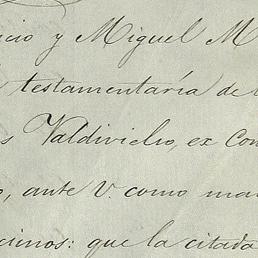 cio y Miguel M
testamentaría de
s Valdivielso, ex Con
o, ante V. como ma
cinos: que la citada